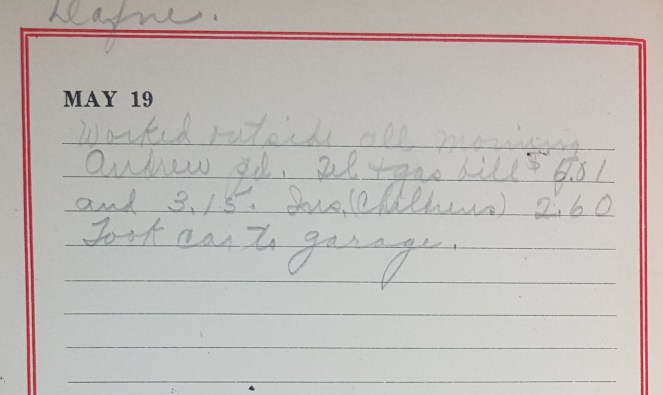 Dafne.
MAY 19
Worked outside all morning
Andrew pd. Tel + gas bill $ 5.81
and 3.15. Ins. (Childrens) 2.60
Took car to garage.